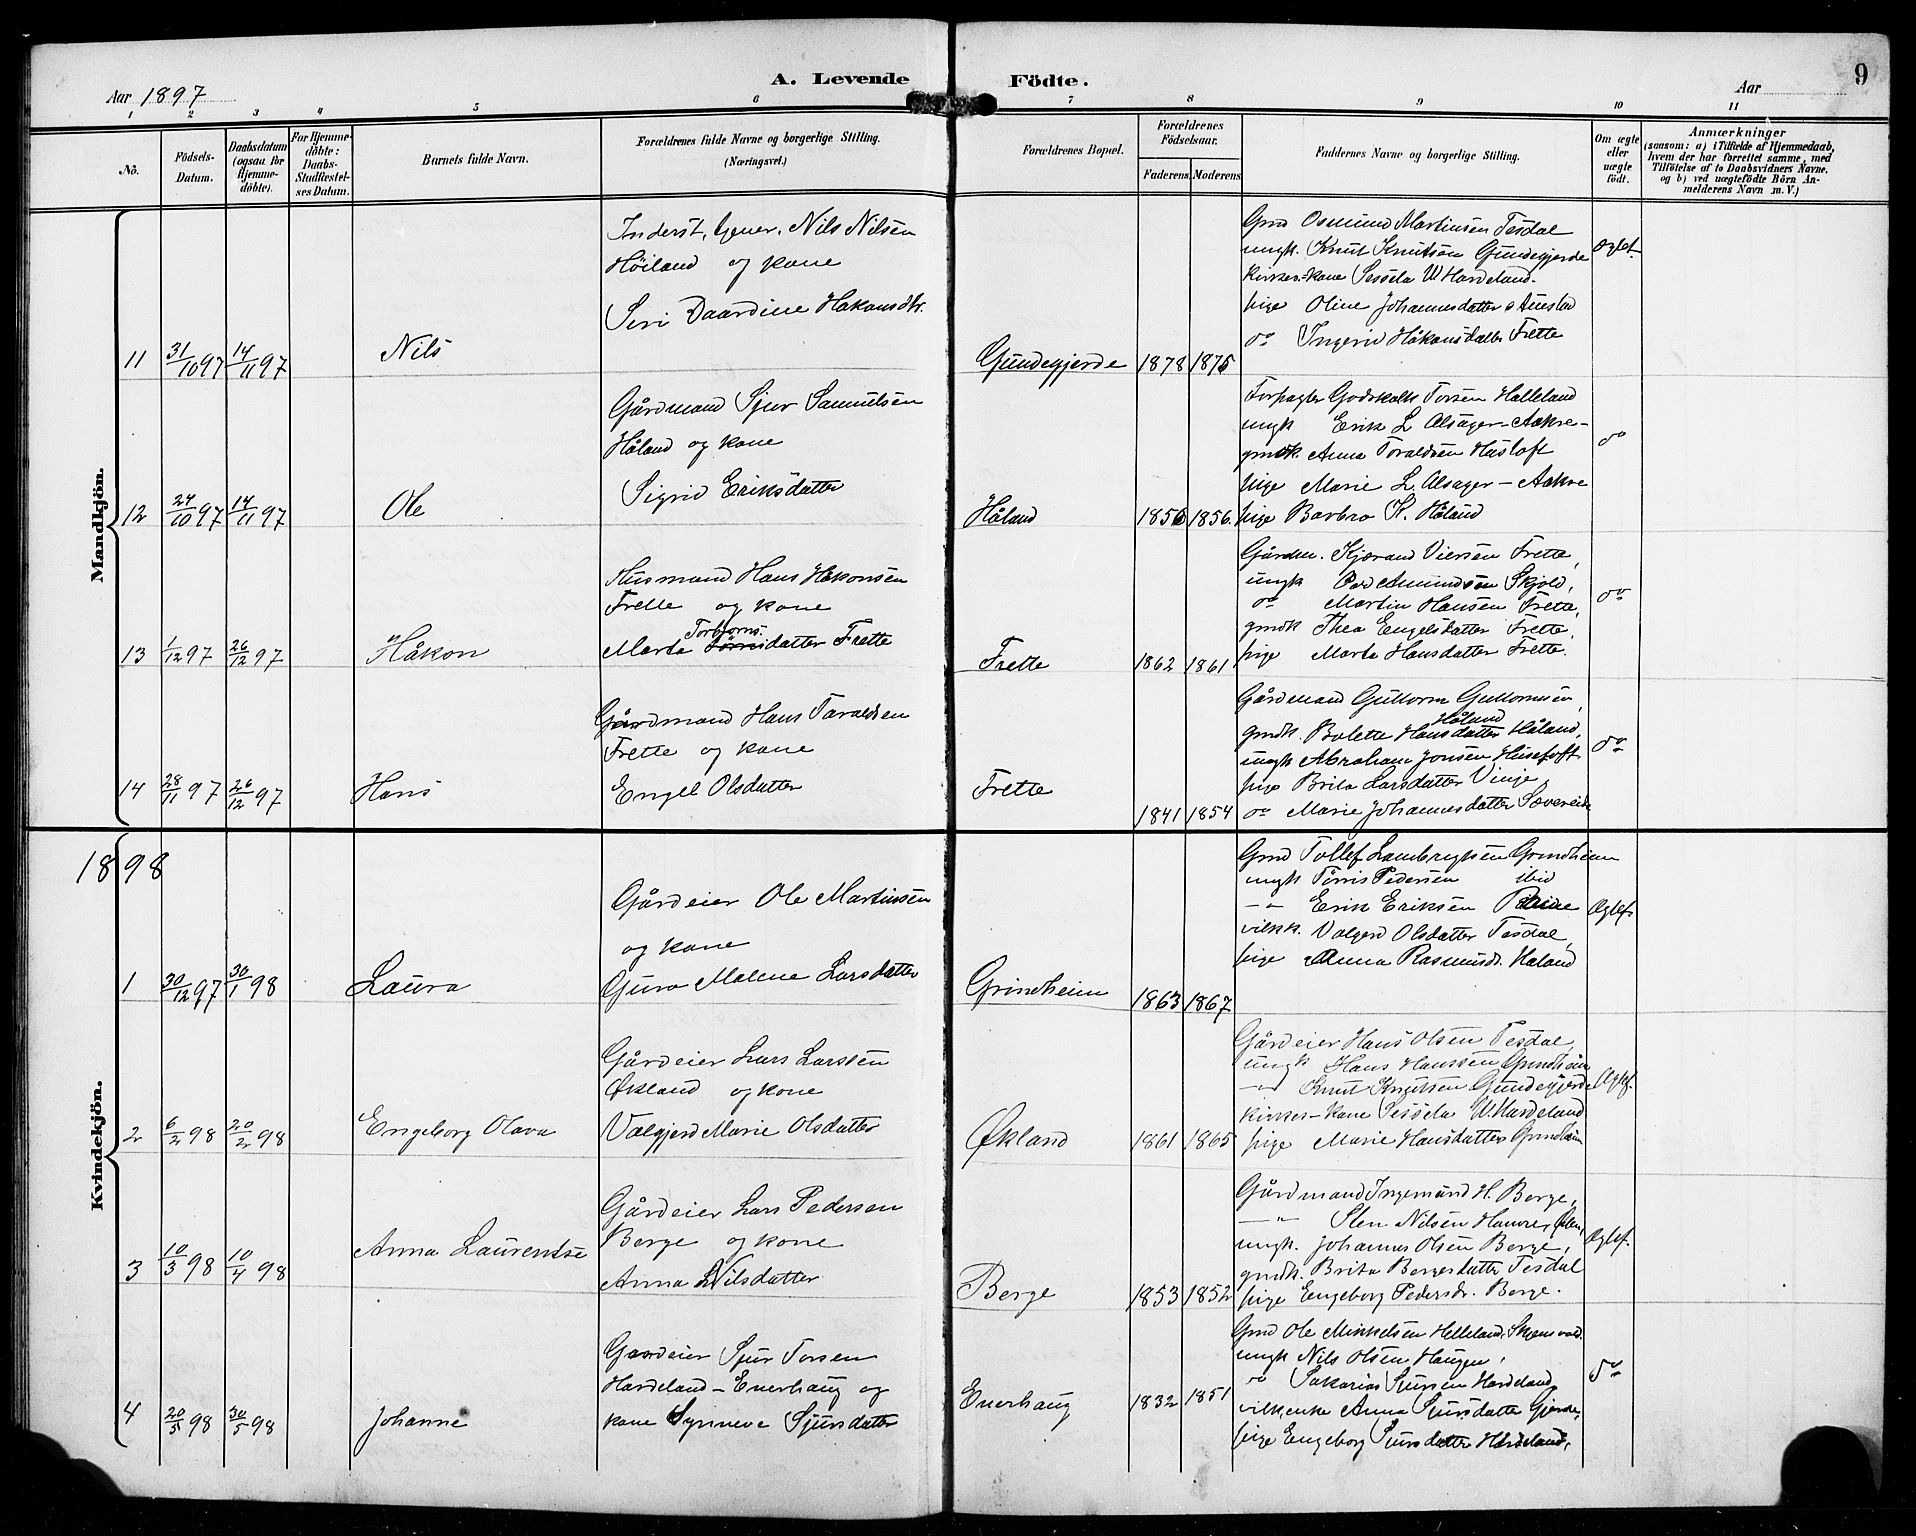 9
Aar 1897
A. Levende Födte.
Aar
1 2 3 4 5 6 7 8 9 10 11
Nö.
Födsels-Datum.
Daabsdatum (ogsaa for Hjemme-döbte).
For Hjemme-döbte: Daabs-Stadfæstel-ses Datum.
Barnets fulde Navn.
Forældrenes fulde Navne og borgerlige Stilling. (Næringsvei.)
Forældrenes Bopæl.
Forældrenes Födselsaar.
Faderens. Moderens.
Faddernes Navne og borgerlige Stilling.
Om ægte eller uægte födt.
Anmærkninger (saasom: a) i Tilfælde af Hjemmedaab, hvem der har forrettet samme, med Tilföielse af to Daabsvidners Navne, og b) ved uægtefödte Börn An-melderens Navn m. V.)
Mandkjön.
11 31/10 97 14/11 97 Nils
Inderst, Nils Nilsen
Höiland og kone
Siri Daardine Hakansdtr.
Gundegjerde 1878 1875
Gmd Osmund Martinsen Tesdal
ungk. Knut Knutsen Gundegjerde
kirkes.=kone Sessela W Hardeland.
pige Oline Johannesdatter
do Ingerid Håkonsdatter Frette
Ægtef.
12 24/10 97 14/11 97 Ole
Gårdmand Sjur Samuelsen
Håland og kone
Sigrid Eriksdatter
Håland 1856 1856.
Forpagter Godskalk Torsen Halleland
ungk Erik L Alsager-Aakre-
gmdk. Anna Toraldsen Husloft
pige Marie L. Alsager-Aakre
pige Barbro K. Håland
do
13 1/12 97 26/12 97 Håkon
Husmand Hans Hakonsen
Frette og kone
Torbjørns.
Marta datter Frette
Frette 1862 1861
Gårdm. Kjørand Viersen Frette,
ungk Amundsen Skjold,
do Martin Hansen Frette,
gmdk Thea Engelsdatter Frette,
pige Marta Hansdatter Frette.
do
14 28/11 97 26/12 97 Hans
Gårdmand Hans Taraldsen
Frette og kone
Engel Olsdatter
Frette 1841 1854
Gårdmand Guttorm Guttormsen,
Håland
gmdk. Bolette Hansdatter Håland,
ungk Abraham Jonsen Husetoft
pige Brita Larsdatter Vinje,
do Marie Johannesdatter Sævereide
do
1898
Kvindekjön.
1 30/12 97 30/1 98 Laura
Gårdeier Ole Martinsen
og kone
Guro Malene Larsdatter
Grindheim 1863 1867
Gmd Tollef Lambregtsen Grindheim
ungk Törris Pedersen ibid
-"- Erik Eriksen
vilkk. Valgerd Olsdatter Tesdal,
pige Anna Rasmusd. Håland
Ægtef.
2 6/2 98 20/2 98 Engeborg Olava
Gårdeier Lars Larsen
Økland og kone
Valgjerd Marie Olsdatter
Økland 1861 1865
Gårdeier Hans Olsen Tesdal,
ungk Hans Hanssen Grindheim
-"- Knut Knutsen Gundegjerde
kirkes-kone Sessela W. Hardeland
pige Marie Hansdatter Grindheim
Ægtef.
3 10/3 98 10/4 98 Anna Laurentse
Gårdeier Lars Pedersen
Berge og kone
Anna Nilsdatter
Berge 1853 1852
Gårdmand Ingemund H. Berge,
-"- Sten Nilsen Hamre, Ølen,
ungk. Johannes Olsen Berge,
gmdk. Brita Bergesdatter Tesdal
pige Engeborg Pedersdr. Berge.
Ægtef.
4 20/5 98 30/5 98 Johanne
Gardeier Sjur Torsen
Hardeland-Enerhaug og
kone Synneve Sjursdatter
Enerhaug 1832 1851
Gmd Ole Mikkelsen Helleland, Skjensvad.
ungk Nils Olsen Haugen,
do Sakarias Sjursen Hardeland
vilkenke Anna Sjursdatter Gjerde,
pige Engeborg Sjursdatter Hardeland,
do